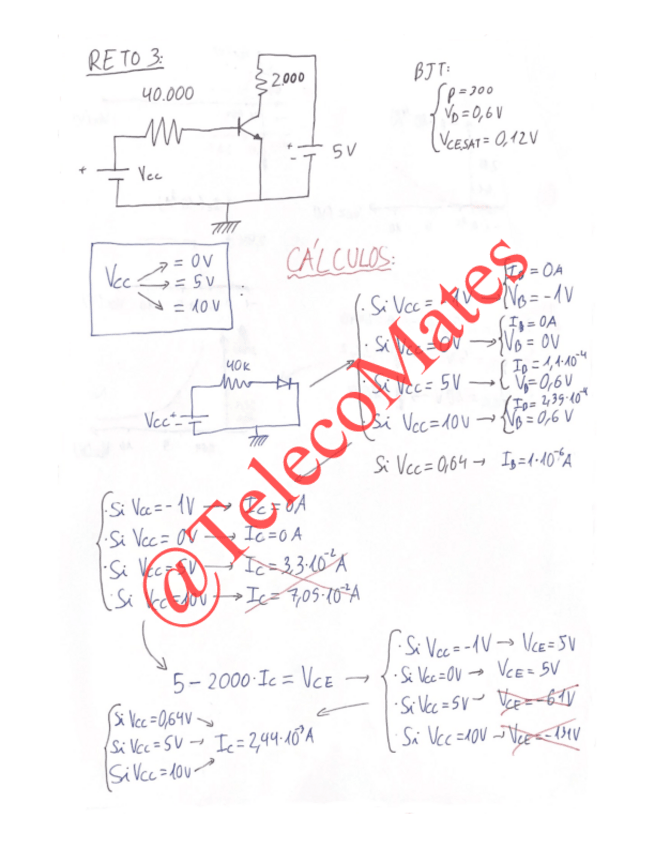 RETO 3:
40.000
2.000
+
Vcc
+
-
5V
BJT:
β=300
VD=0,6V
VCE,SAT=0,12V
Vcc
= 0V
= 5V
= 10V
CÁLCULOS:
· Si Vcc = -1V → IB = 0A
VB = -1V
· Si Vcc = 0V → IB = 0A
VB = 0V
· Si Vcc = 5V → IB = 1,1·10⁻⁴
VB = 0,6V
Si Vcc = 10V → IB = 2,35·10⁻⁴
VB = 0,6V
Si Vcc = 0,64 → IB = 1·10⁻⁶A
40k
Vcc
+
-
· Si Vcc = -1V → Ic = 0A
· Si Vcc = 0V → Ic = 0A
· Si Vcc = 5V → Ic = 3,3·10⁻²A
· Si Vcc = 10V → Ic = 7,05·10⁻²A
@TelecoMates
5 - 2000·Ic = VCE →
· Si Vcc = -1V → VCE = 5V
· Si Vcc = 0V → VCE = 5V
· Si Vcc = 5V → VCE = -61V
· Si Vcc = 10V → VCE = -131V
Si Vcc = 0,64V
Si Vcc = 5V → Ic = 2,44·10⁻³A
Si Vcc = 10V